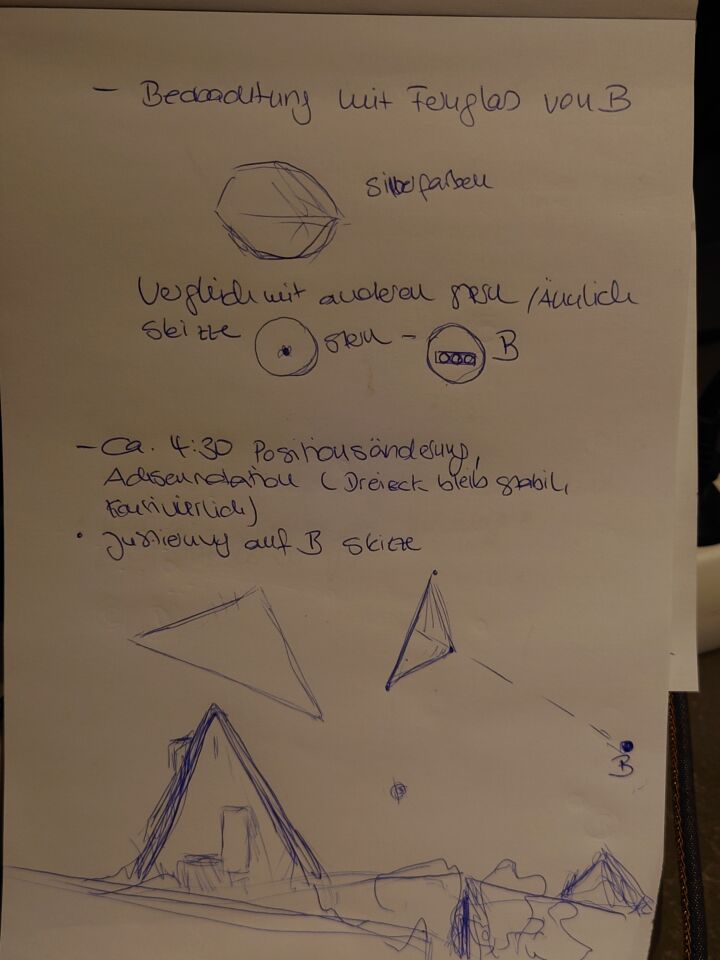 - Beobachtung mit Fernglas von B
silberfarben
Vergleich mit anderen Stern / Ähnlich
Skizze Stern - B
- Ca. 4:30 Positionsänderung,
Achsenrotation (Dreieck bleib stabil,
• Justierung auf B Skizze
B